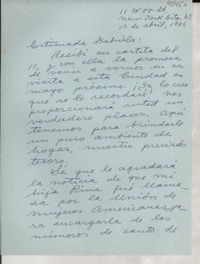 New York City, 25
12 de abril, 1946
Estimada Gabriela:
Recibí su cartita del
11, y con ella la promesa
de venir a vernos en su
visita a esta Ciudad en
mayo próximo. ¡Ya lo crees
que se lo recordaré! nos
proporcionará usted un
verdadero placer. Aquí
tenemos para brindarle
un puro ambiente de
hogar, nuestro preciado
tesoro.
Sé que le agradará
la noticia de que mi
hija Rina fué llama-
da por la Unión de
mujeres Americanas, pa-
ra encargarla de los
números de canto de